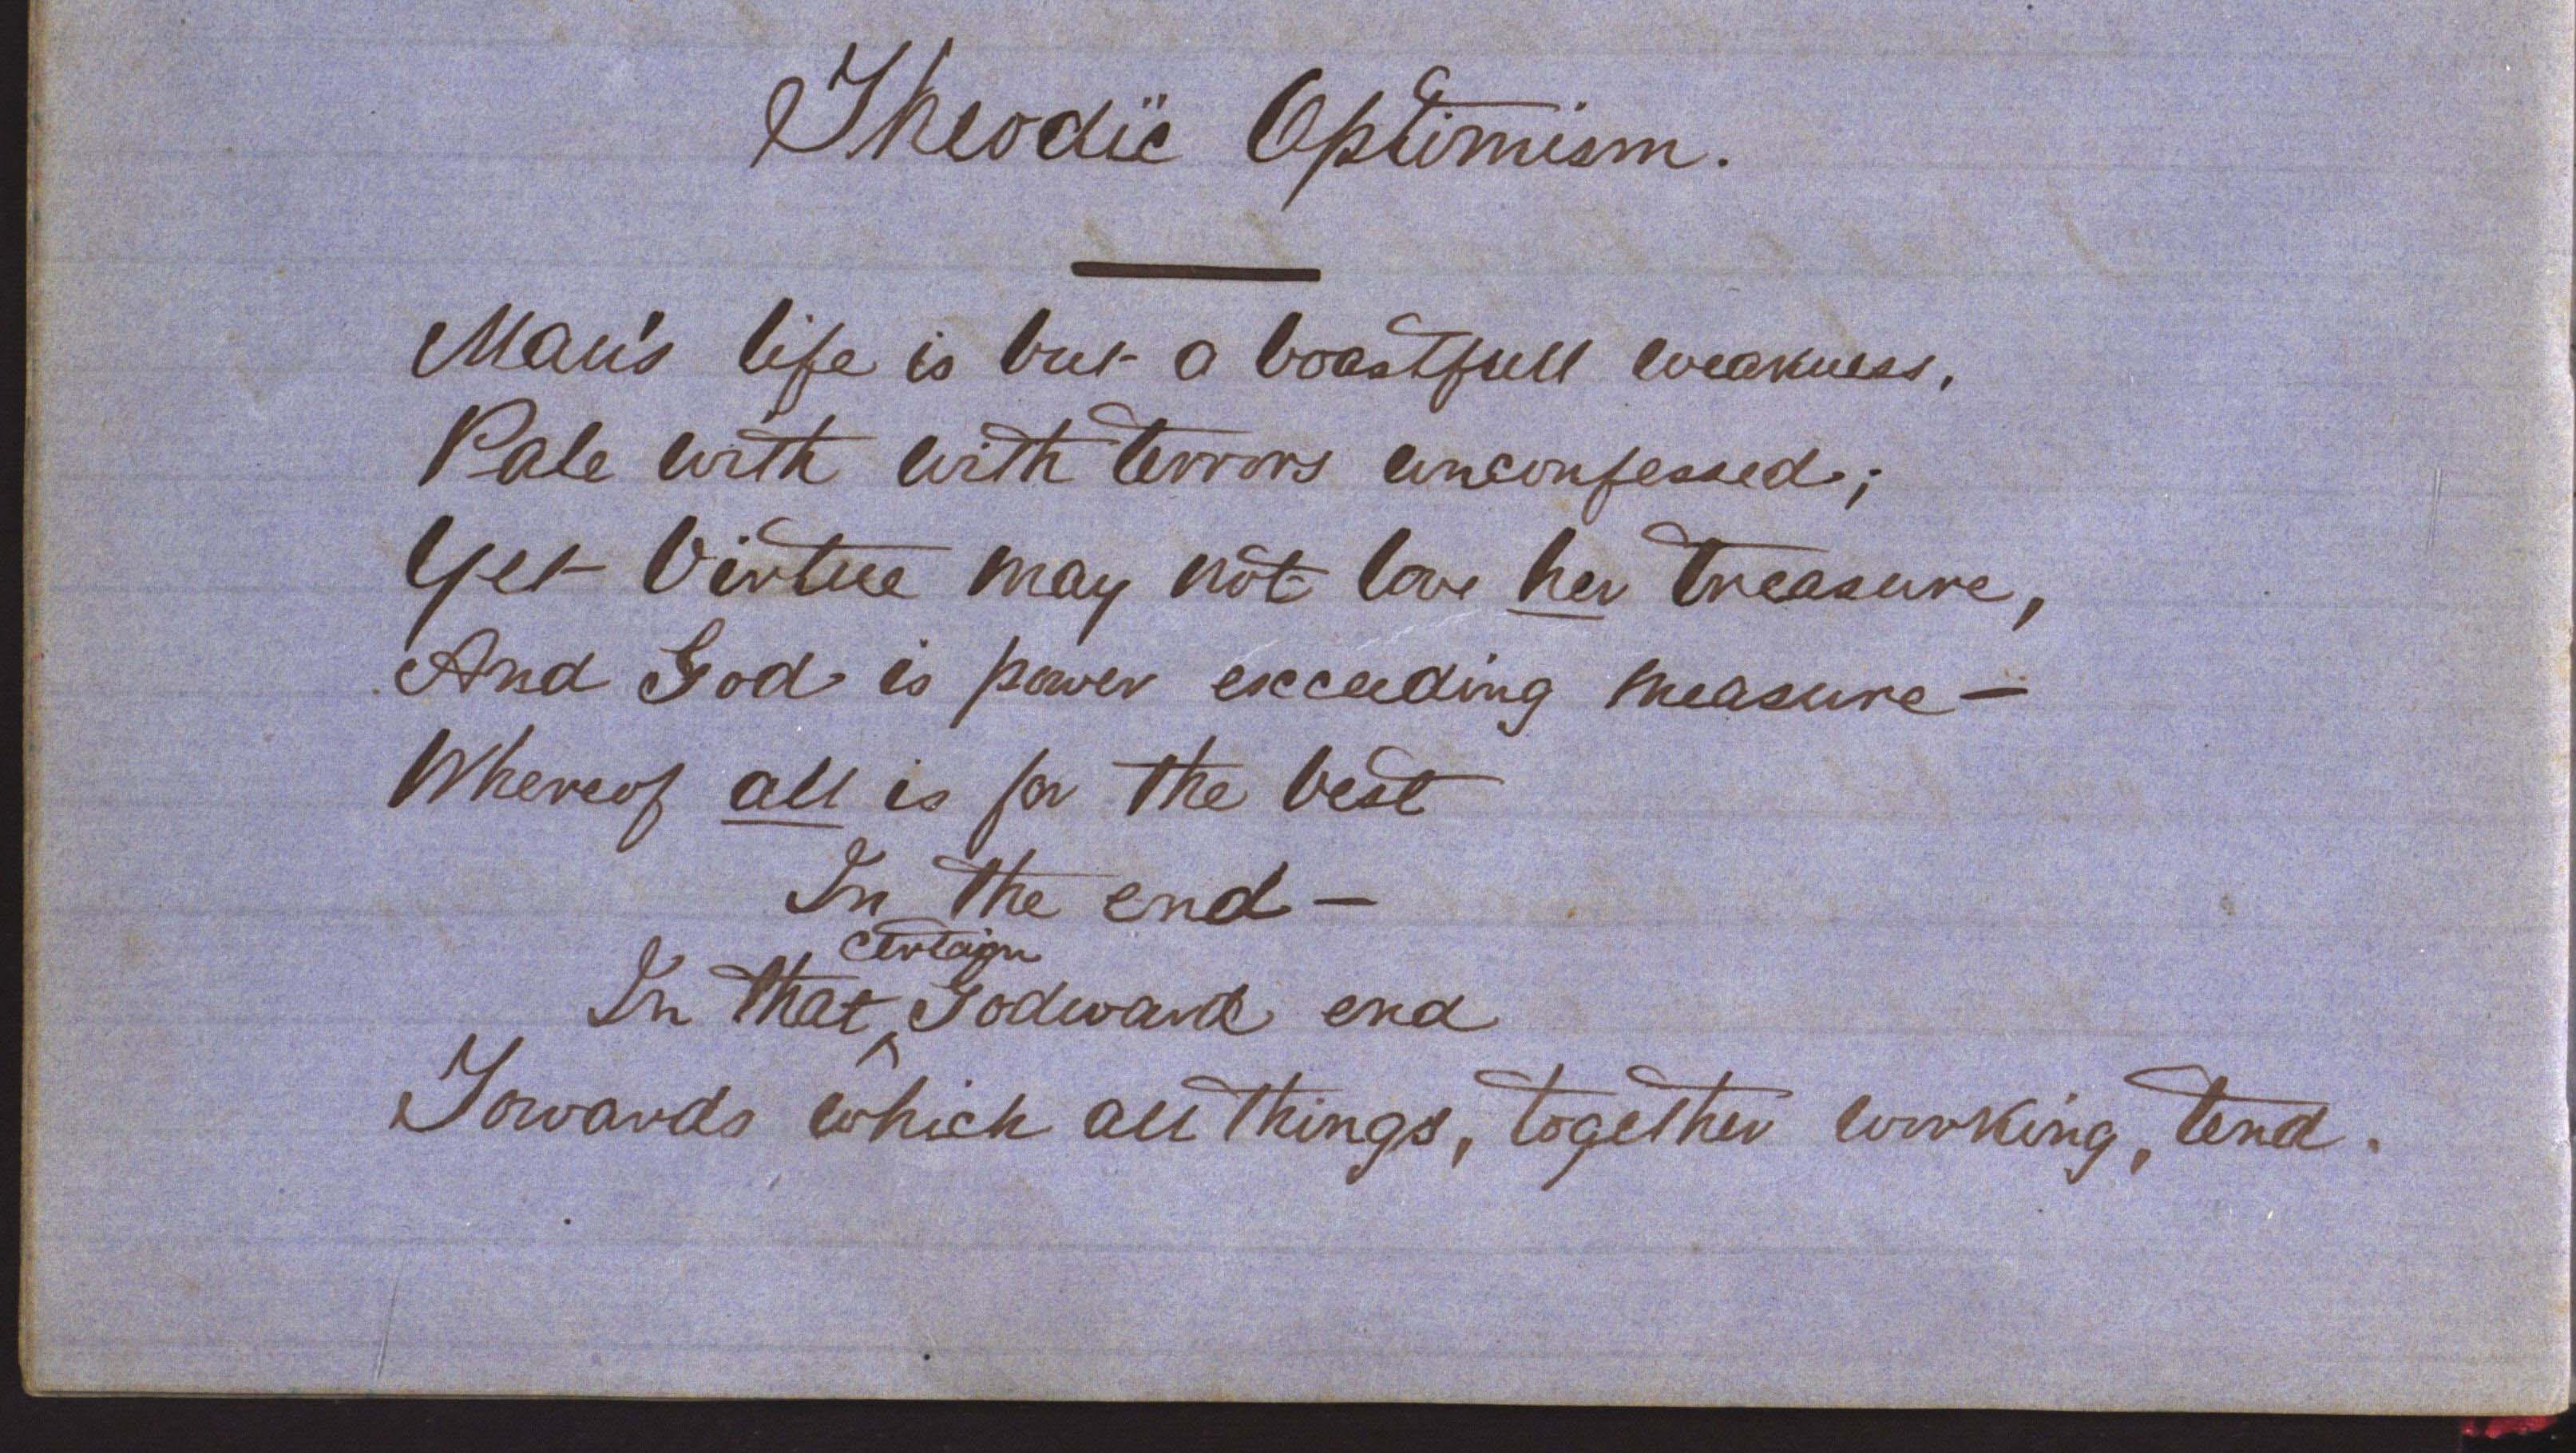 Theodïc Optimism.
Man's life is but a boastfull weakness,
Pale with with terrors unconfessed;
Yet Virtue may not love her treasure,
And God is power exceeding measure—
Whereof all is for the best
In the end—
certain
In that Godward end
Towards which all things, together working, tend.